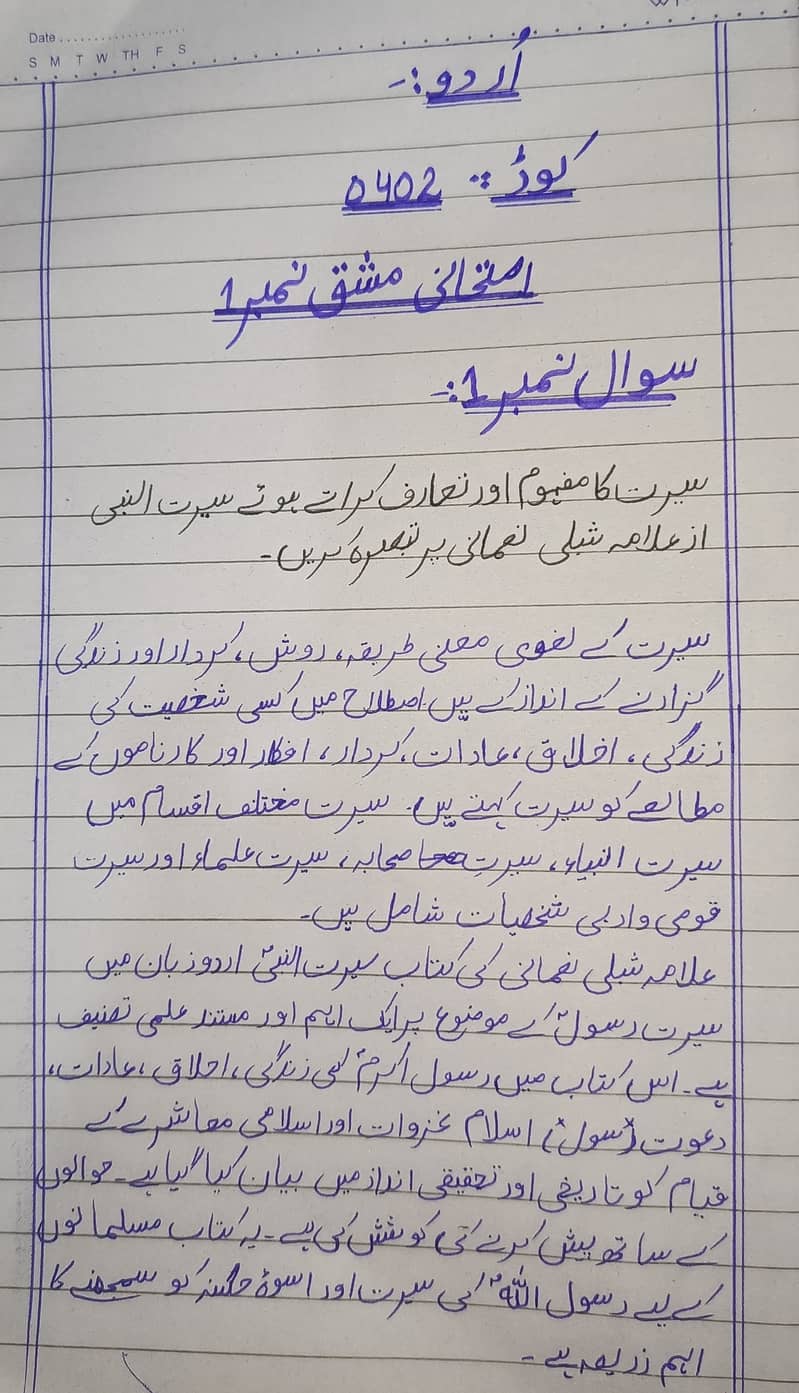 Date
S M T W TH F S
اُردو:-
کوڈ :- 0402
امتحانی مشق نمبر 1
سوال نمبر 1:-
سیرت کا مفہوم اور تعارف کراتے ہوئے سیرت النبی
از علامہ شبلی نعمانی پر تبصرہ کریں۔
سیرت کے لغوی معنی طریقہ، روش، کردار اور زندگی
گزارنے کے انداز کے ہیں اصطلاح میں کسی شخصیت کی
زندگی، اخلاق، عادات، کردار، افکار اور کارناموں کے
مطالعے کو سیرت کہتے ہیں۔ سیرت مختلف اقسام میں
سیرت النبیاء، سیرت صحابہ، سیرت علماء اور سیرت
قومی وادبی شخصیات شامل ہیں۔
علامہ شبلی نعمانی کی کتاب سیرت النبیؐ اردو زبان میں
سیرت رسولؐ کے موضوع پر ایک اہم اور مستند علمی تصنیف
ہے۔ اس کتاب میں رسول اکرمؐ کی زندگی، اخلاق، عادات،
دعوت (رسولؐ) اسلام غزوات اور اسلامی معاشرے کے
قیام کو تاریخی اور تحقیقی انداز میں بیان کیا گیا ہے۔ حوالوں
کے ساتھ پیش کرنے کی کوشش کی ہے۔ یہ کتاب مسلمانوں
کے لیے رسول اللہؐ کی سیرت اور اسوۂ حسنہ کو سمجھنے کا
اہم ذریعہ ہے۔